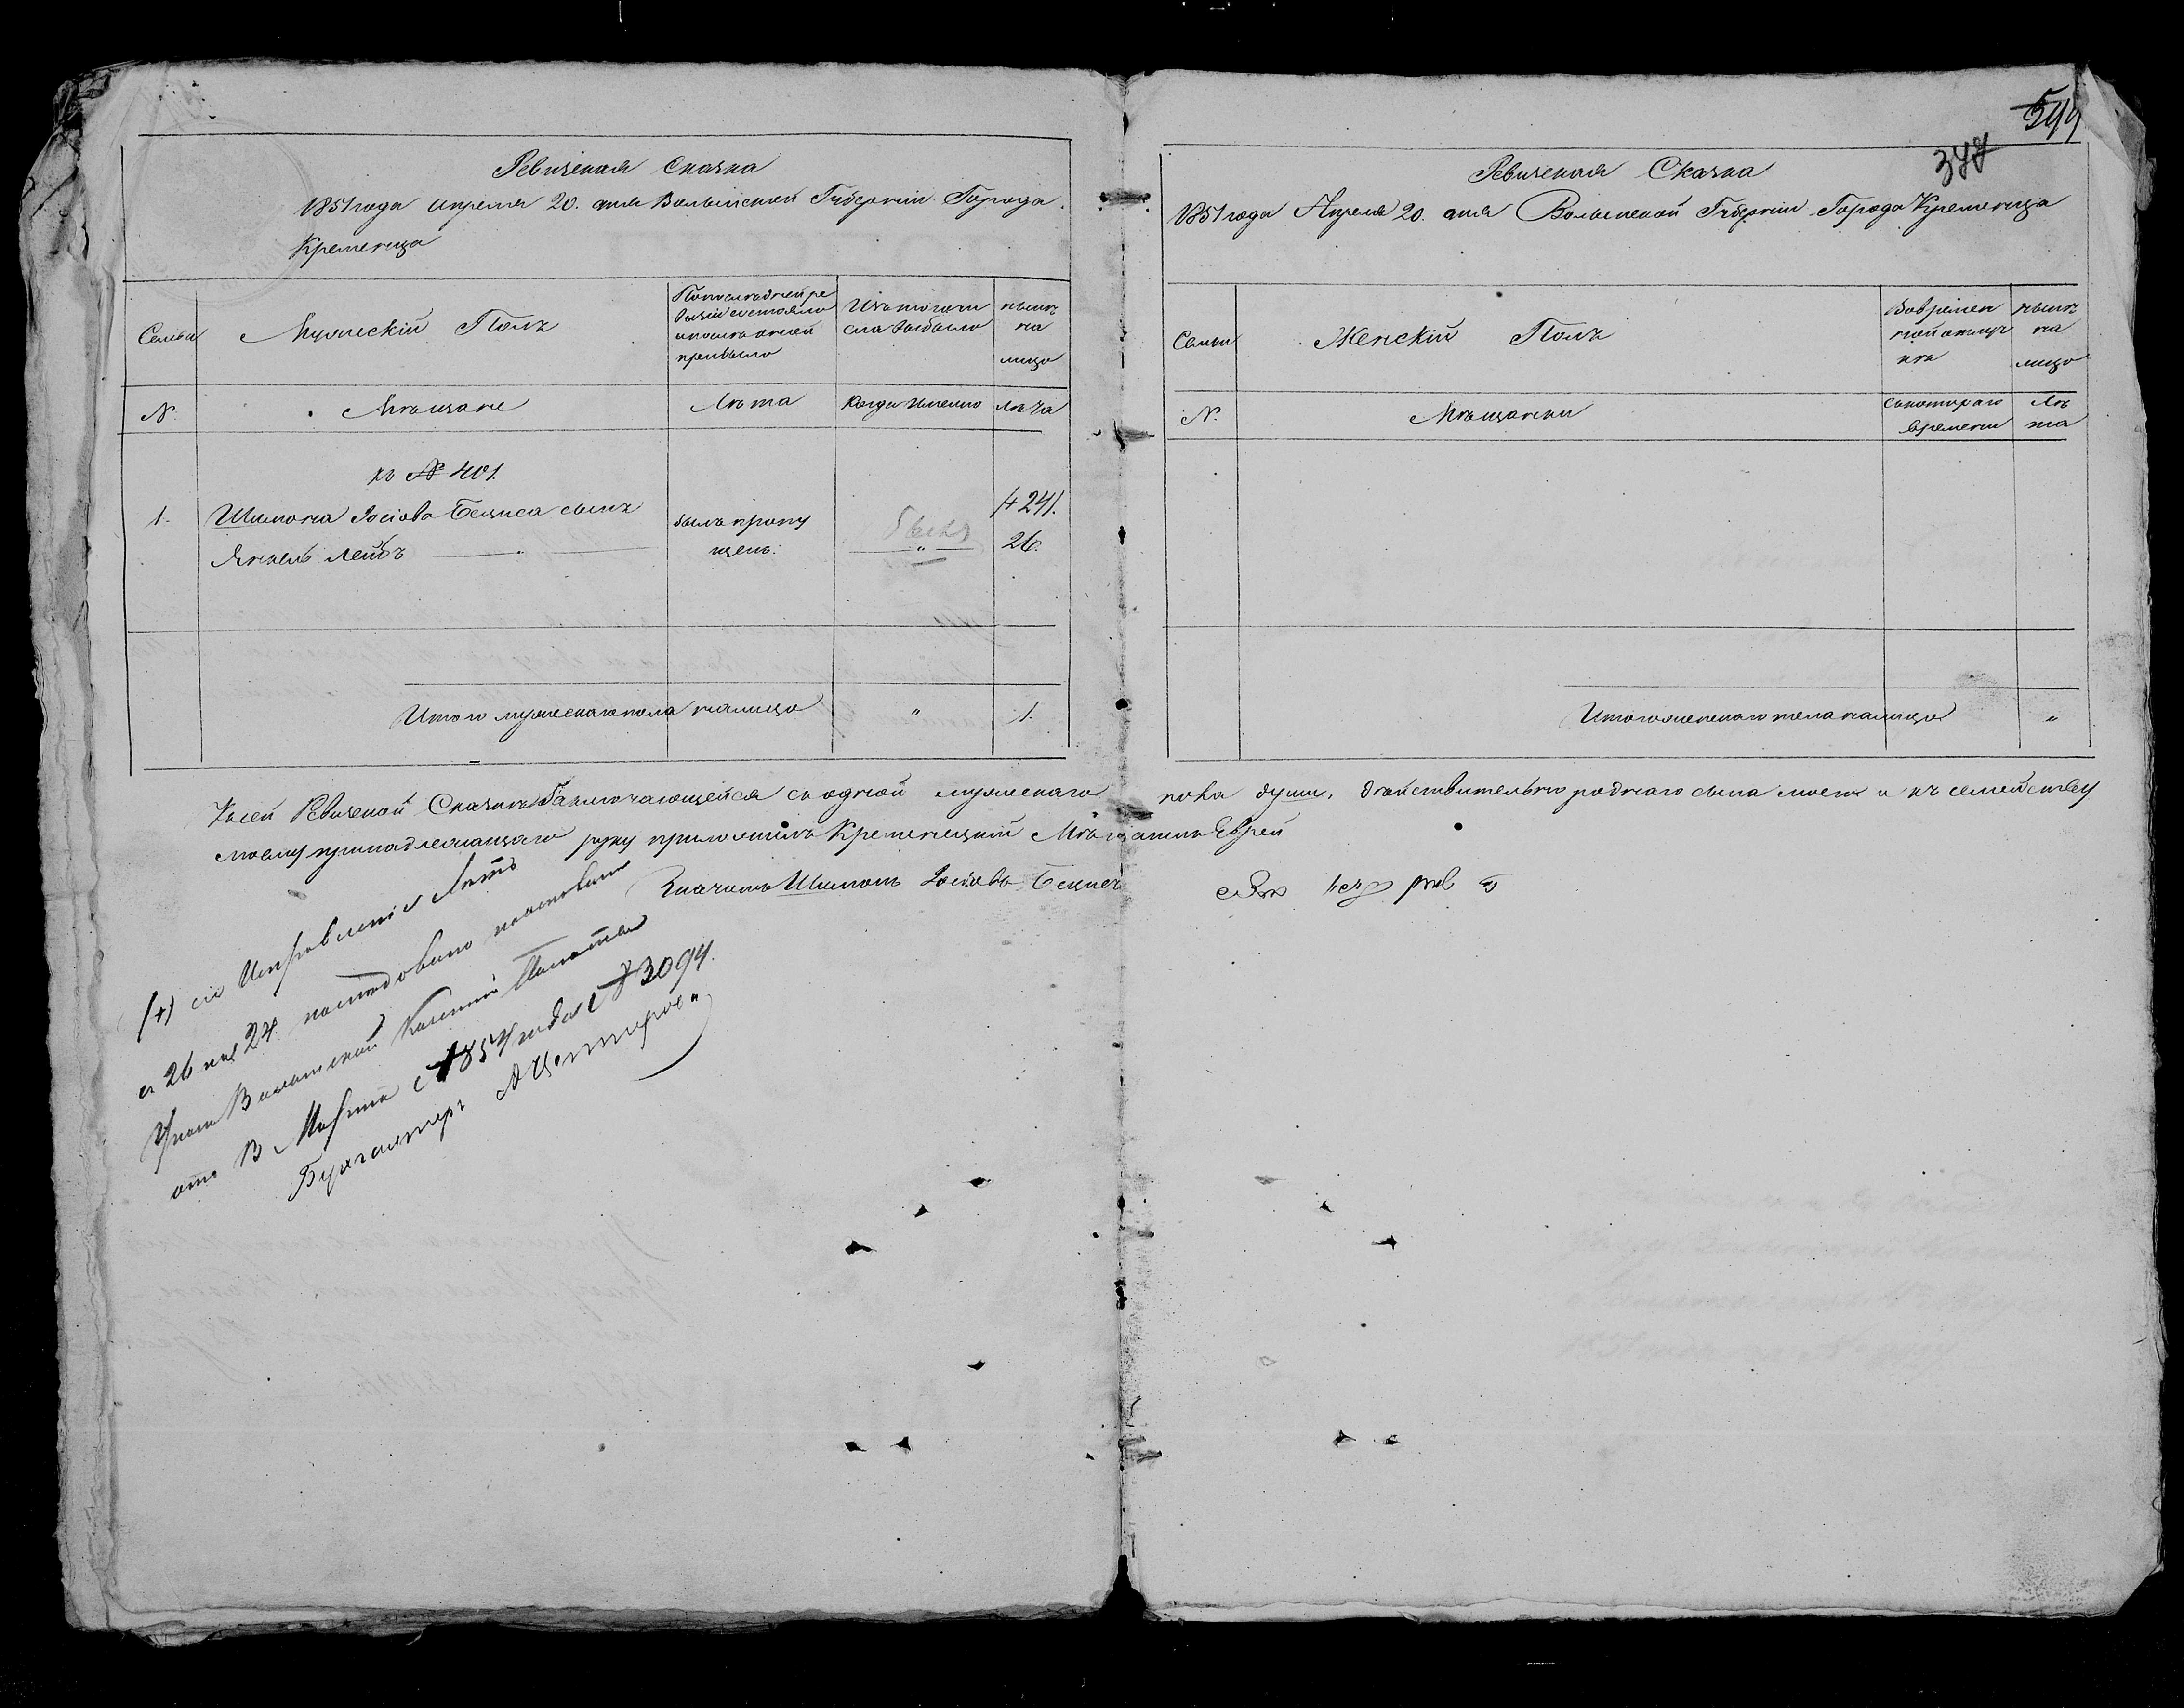 Ревизская Сказка
1851 года Апреля 20. дня Волынской Губернии Города
Кременца
Семьи
Мужескій Полъ
По последней ре
визіи состояло
и после оной
прибыло
Изъ того чи
сла выбыло
ныне
на
лицо
№
Мещане
Лета
Когда именно
Лета
къ № 401.
1.
Шимона Іосіова Бециса сынъ
Янкель Лейбъ
былъ пропу
щенъ.
+ 24.
26.
Итого мужескаго пола налицо
"
1.
549
Ревизская Сказка
1851 года Апреля 20. дня Волынской Губерніи Города Кременца
Семьи
Женскій Полъ
Во времен
ной отлуч
ке
ныне
на
лицо
№
Мещанки
Съ котораго
времени
Ле
та
Итого женскаго пола налицо
"
К сей Ревизской Сказке Заключающейся въ одной мужескаго пола души, действительно роднаго сына моего и къ семейству
моему принадлежащаго руку приложилъ Кременецкій Мещанинъ Еврей
Шимонъ Іосіовъ
(+) сіе Исправленіе Летъ
съ 26 на 24. последовало
Волынской Казенной Палаты
отъ Марта 1854 года № 3094.
Бухгалтеръ